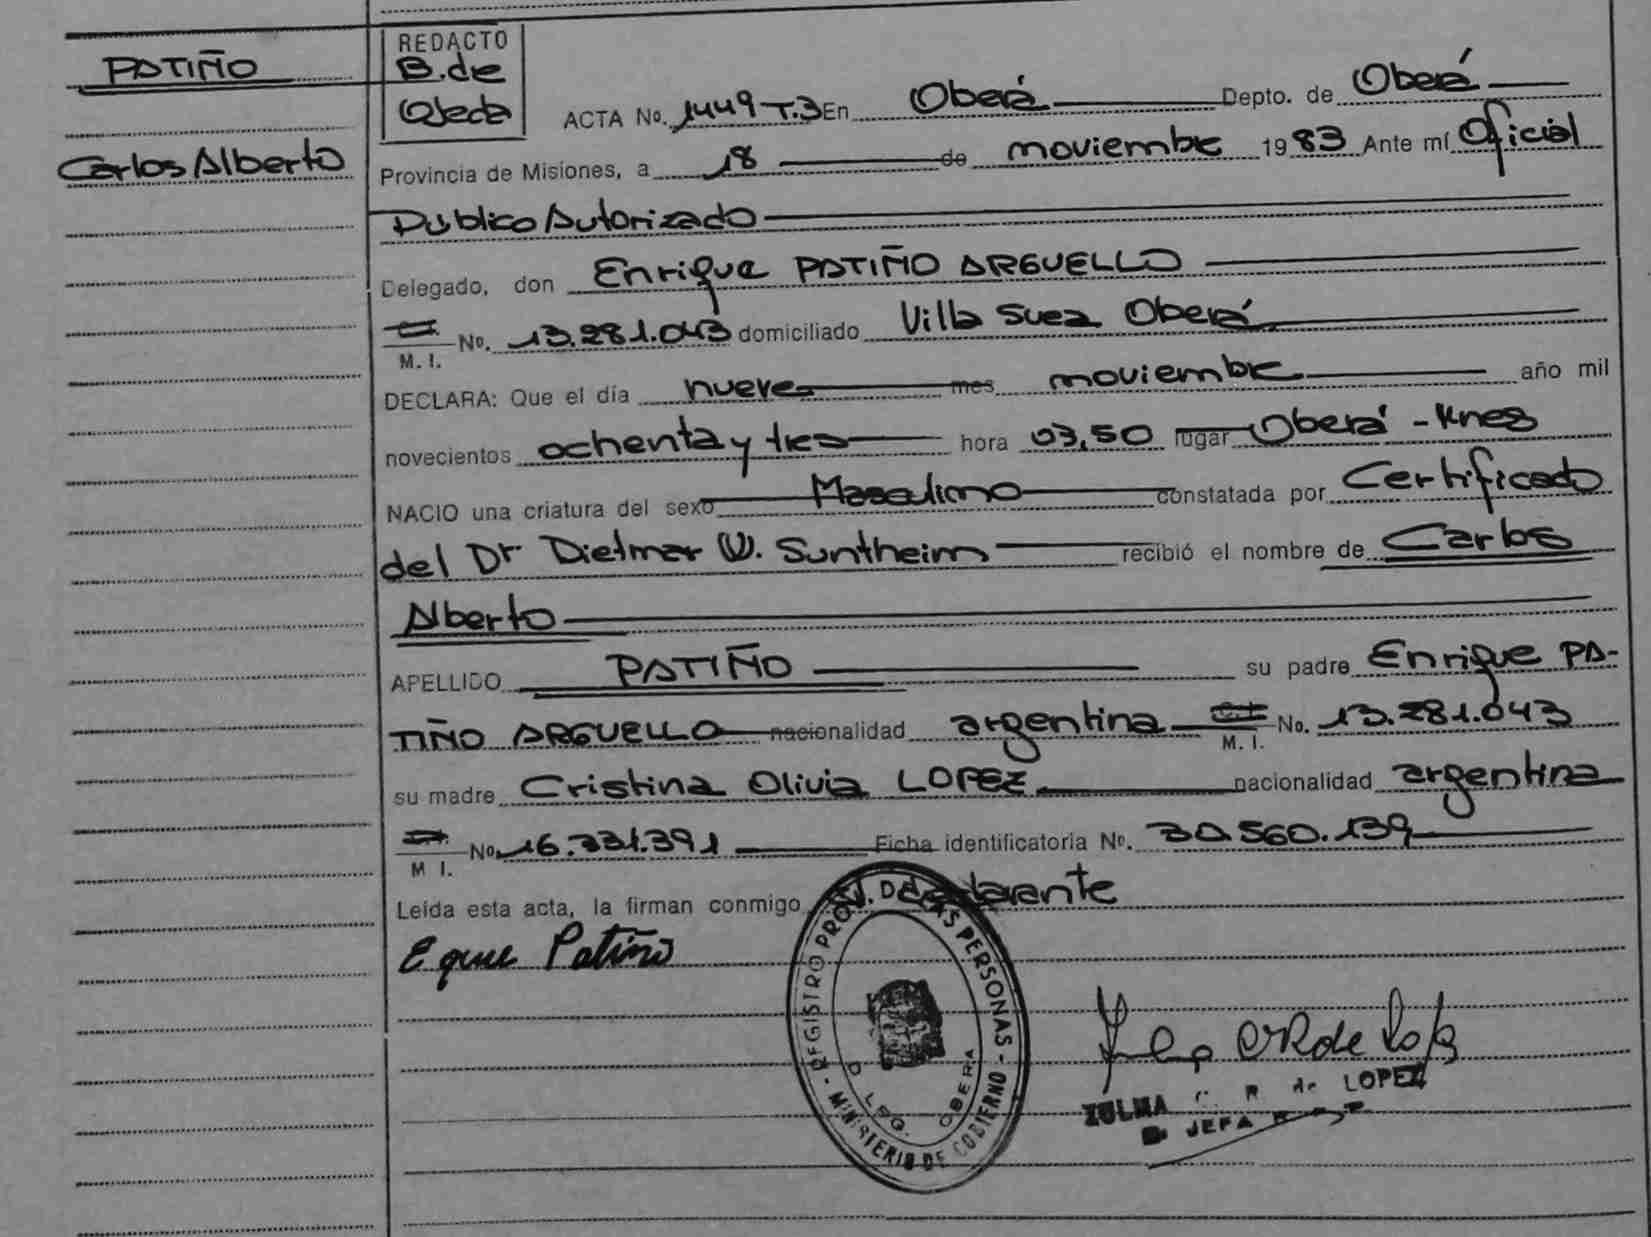 PATIÑO
Carlos Alberto
REDACTO
B. de
Ojeda
ACTA No. 1449 T.3 En Oberá Depto. de Oberá
Provincia de Misiones, a 18 de noviembre 1983 Ante mí Oficial
Público Autorizado
Delegado, don Enrique PATIÑO ARGUELLO
M. I. No. 13.281.043 domiciliado Villa Suez Oberá
DECLARA: Que el día nueve mes noviembre año mil
novecientos ochenta y tres hora 03,50 lugar Oberá -
NACIO una criatura del sexo Masculino constatada por Certificado
del Dr Dietmar W. Suntheim recibió el nombre de Carlos
Alberto
APELLIDO PATIÑO su padre Enrique PA-
TIÑO ARGUELLO nacionalidad argentina M. I. No. 13.281.043
su madre Cristina Olivia LOPEZ nacionalidad argentina
M I. No. 16.331.391 Ficha identificatoria No. 30.560.139
Leida esta acta, la firman conmigo declarante
Patiño
REGISTRO PROV. DE LAS PERSONAS - MINISTERIO DE GOBIERNO -
OBERA
ZULMA R de LOPEZ
JEFA